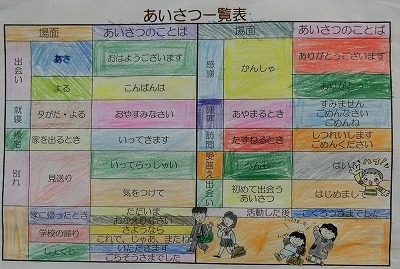 あいさつ一覧表
場面 あいさつのことば
出会い
あさ おはようございます
よる こんばんは
就寝 夕がた・よる おやすみなさい
家を出るとき いってきます
別れ 見送り
いってらっしゃい
気をつけて
家に帰ったとき ただいま
おかえりなさい
学校の帰り さようなら
これで、じゃあ、またね
しょくじ いただきます
ごちそうさまでした
場面 あいさつのことば
感謝 かんしゃ
ありがとうございます
謝罪 あやまるとき
すみません
ごめんなさい
ごめんね
訪問 たずねるとき
しつれいします
ごめんください
受答え へんじ はい
出会い 初めて出会う
あいさつ
はじめまして
活動した後 ごくろうさまでした